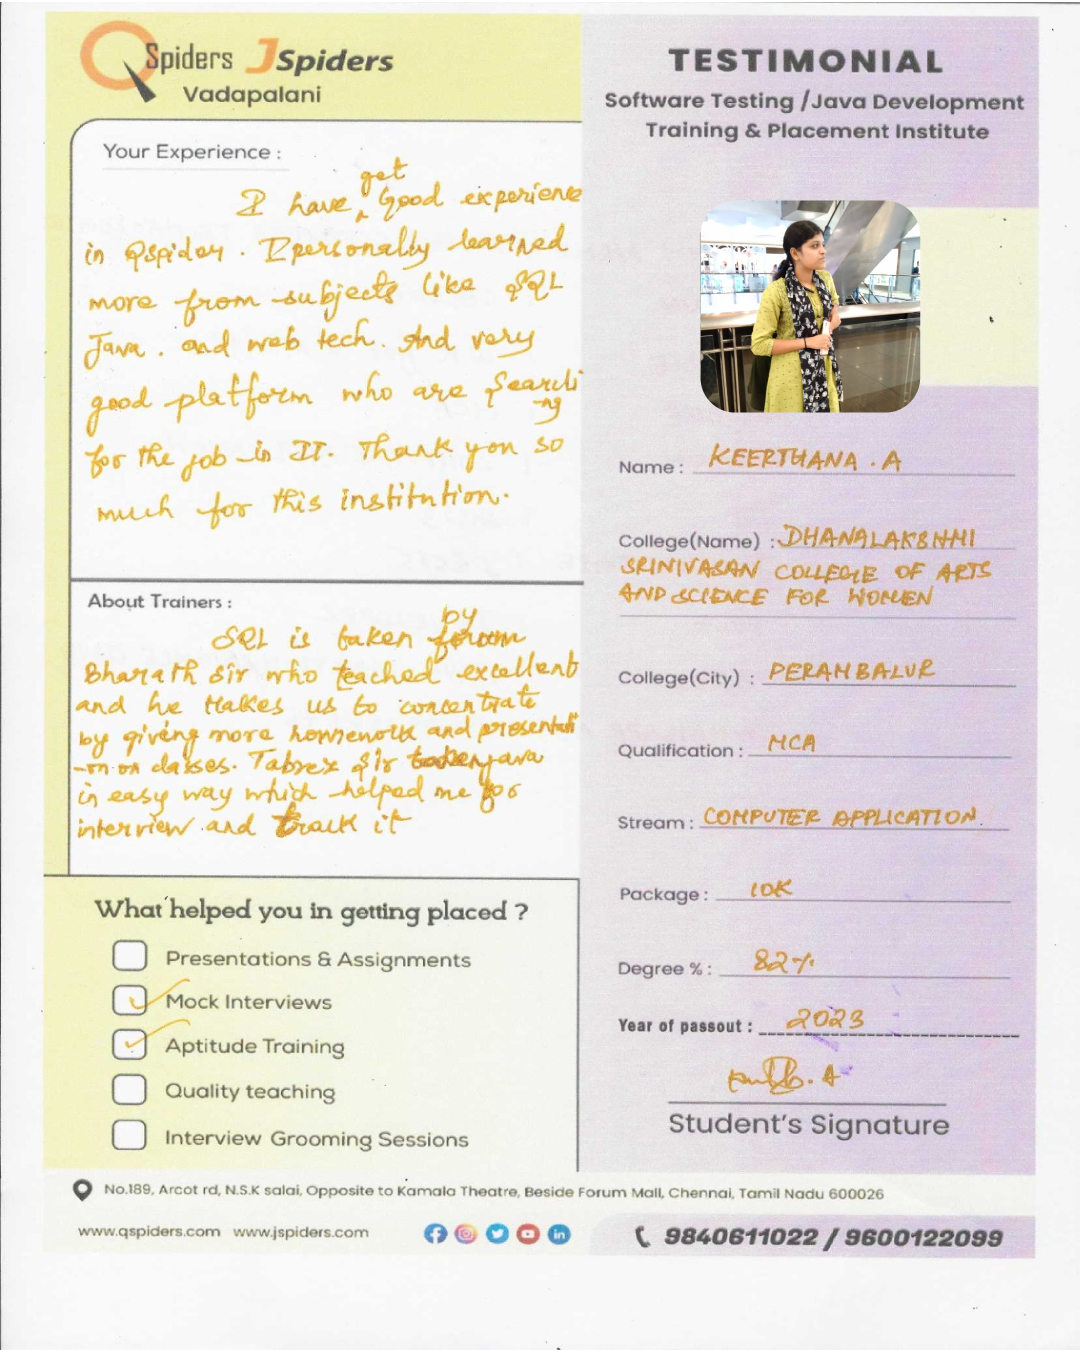 QSpiders JSpiders
Vadapalani
Your Experience :
get
I have ^ Good experience
in Qspider. I personally learned
more from subjects like SQL
Java. and web tech. And very
good platform who are Searchi
-ng
for the job in IT. Thank you so
much for this institution.
About Trainers :
by
SQL is taken
Bharath Sir who teached excellent
and he makes us to concentrate
by giving more homework and presentati
-on on classes. Tabrez Sir taken java
in easy way which helped me for
interview and crack it
What helped you in getting placed ?
Presentations & Assignments
Mock Interviews
Aptitude Training
Quality teaching
Interview Grooming Sessions
TESTIMONIAL
Software Testing /Java Development
Training & Placement Institute
Name : KEERTHANA . A
College(Name) : DHANALAKSHMI
SRINIVASAN COLLEGE OF ARTS
AND SCIENCE FOR WOMEN
College(City) : PERAMBALUR
Qualification : MCA
Stream : COMPUTER APPLICATION.
Package : 10K
Degree % : 82%
Year of passout : 2023
Student's Signature
No.189, Arcot rd, N.S.K salai, Opposite to Kamala Theatre, Beside Forum Mall, Chennai, Tamil Nadu 600026
www.qspiders.com www.jspiders.com
9840611022 / 9600122099